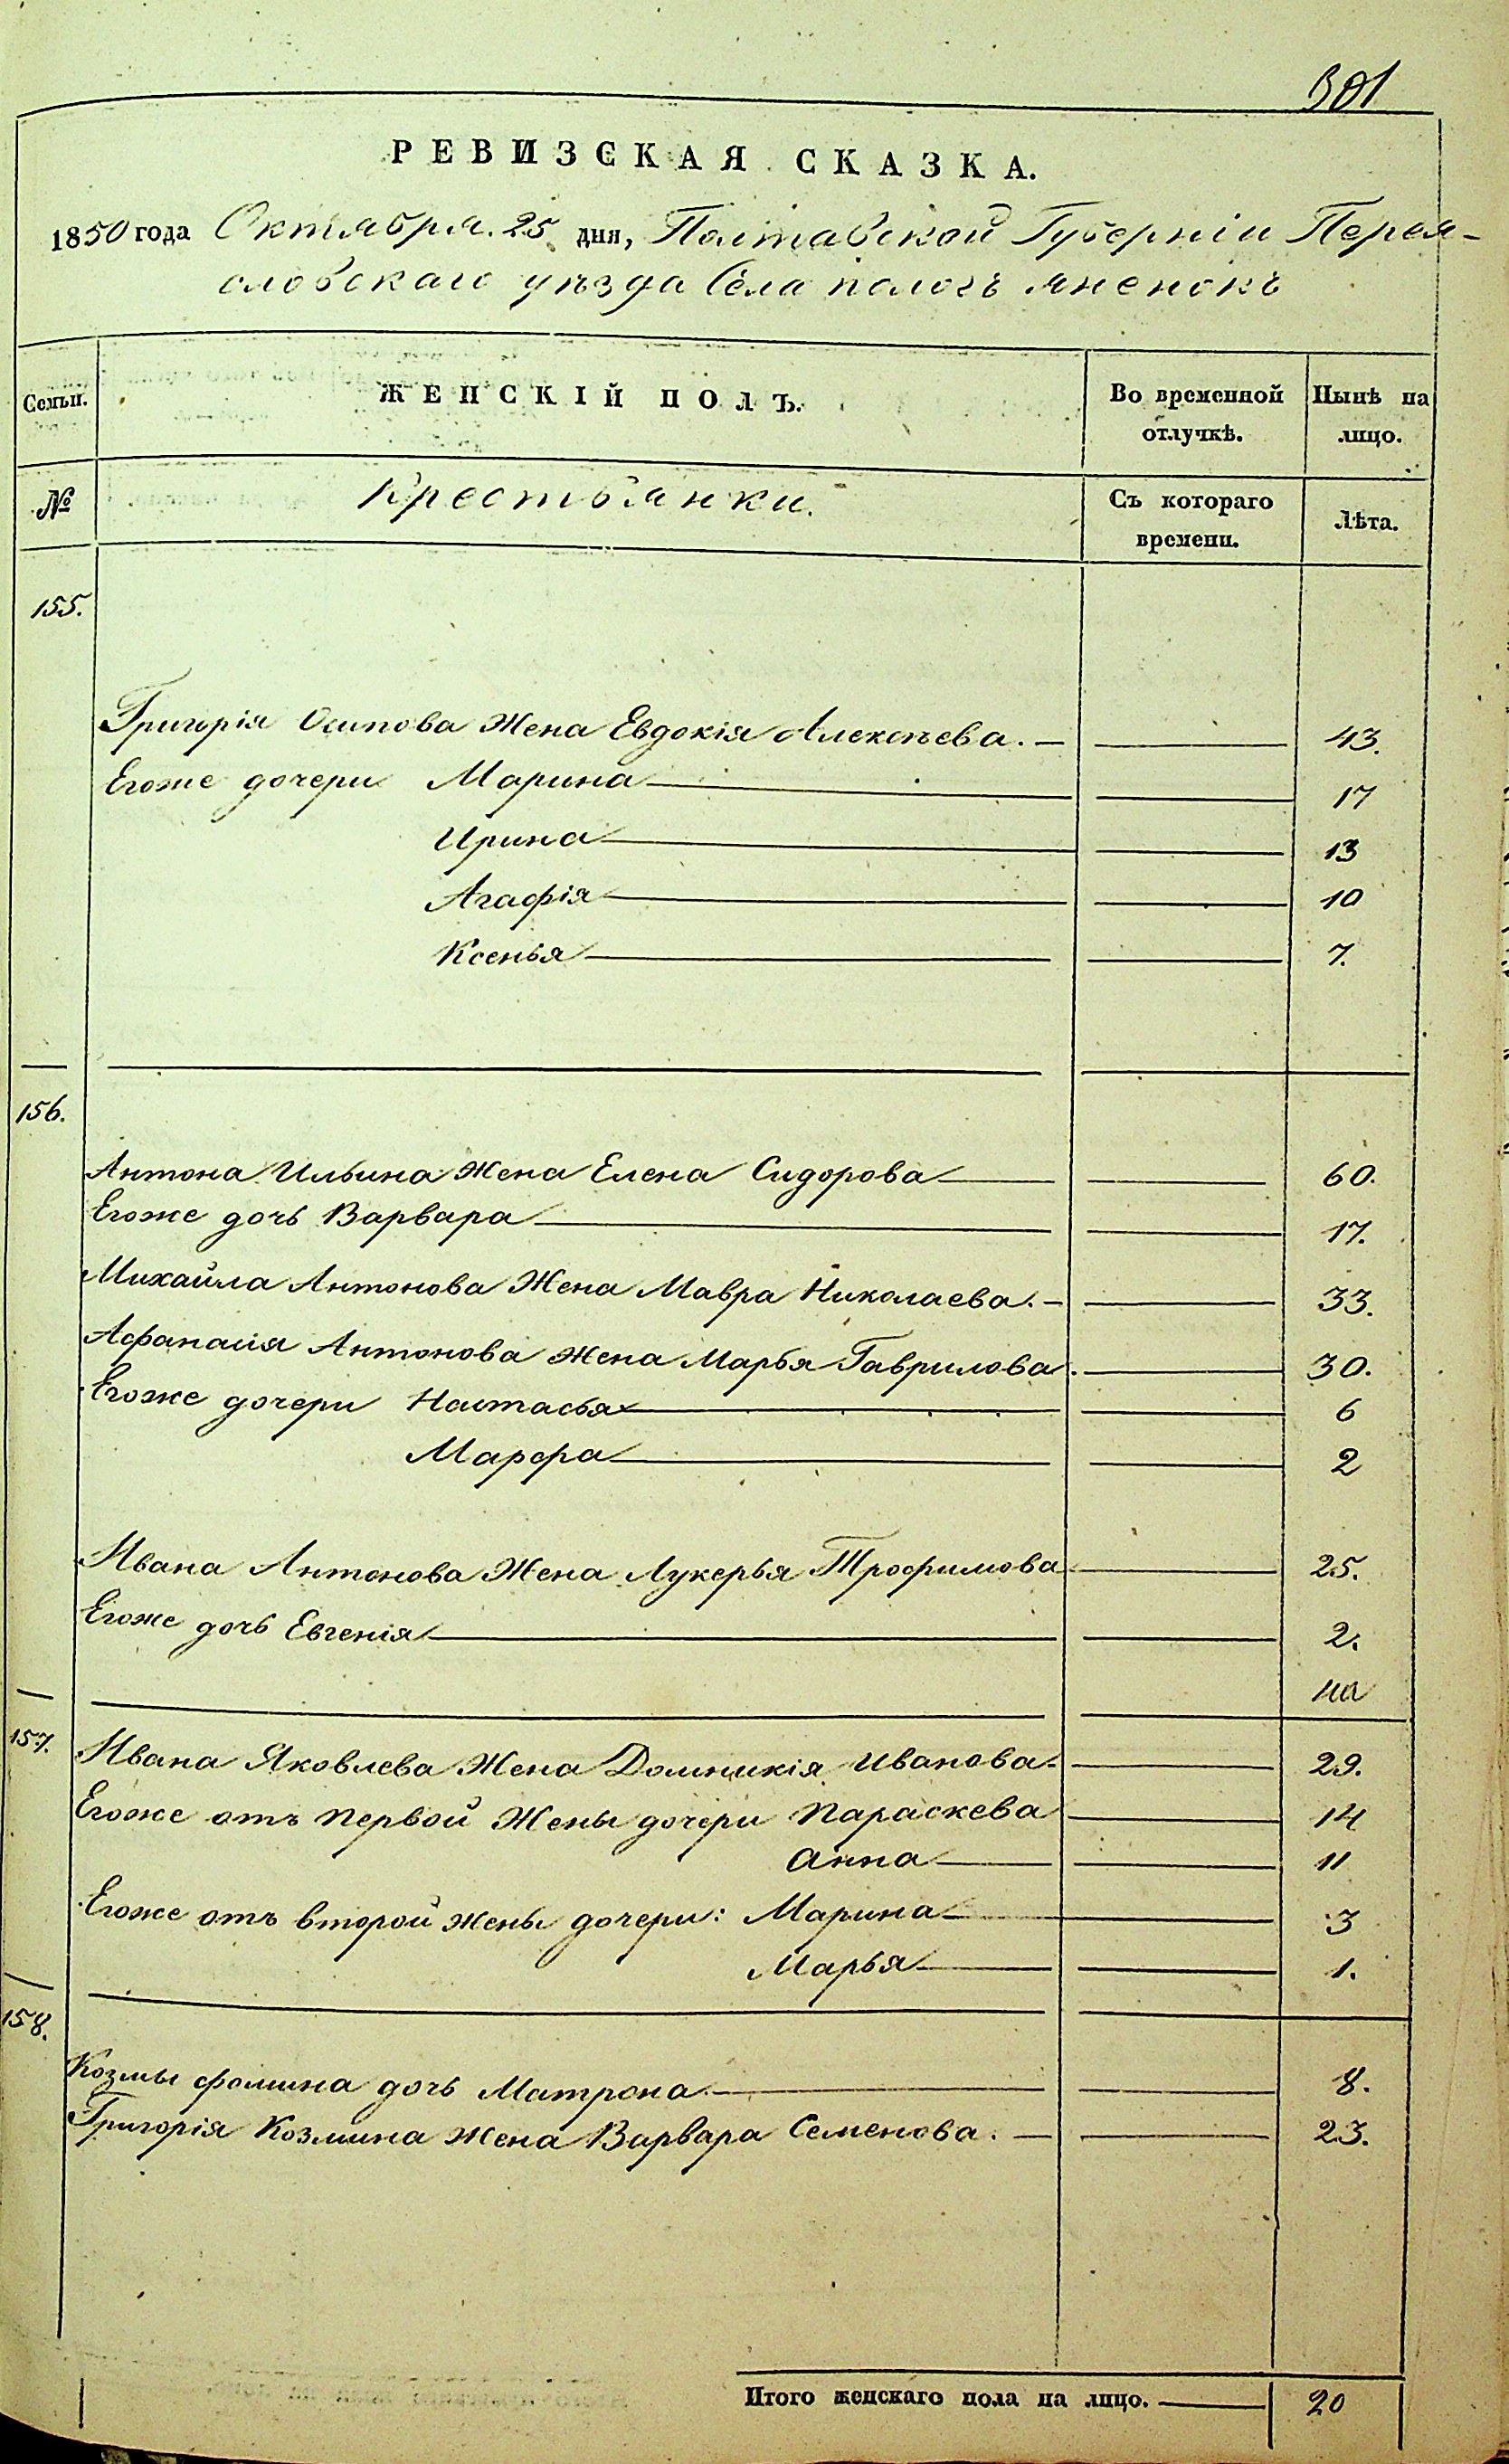 301
РЕВИЗСКАЯ СКАЗКА.
1850 года Октября. 25 дня, Полтавской Губерніи Перея-
словскаго уѣзда Села
Семьи. ЖЕНСКІЙ ПОЛЪ. Во временной отлучкѣ. Нынѣ на лицо.
№ Крестьянки. Съ котораго времени. Лѣта.
155.
Григорія Осипова Жена Евдокія Алексѣева. — 43.
Егоже дочери Марина 17
Ирина 13
Агафія 10
Ксенья 7.
156.
Антона Ильина Жена Елена Сидорова 60.
Егоже дочь Варвара 17.
Михайла Антонова Жена Мавра Николаева. — 33.
Афанасія Антонова Жена Марья Гаврилова. 30.
Егоже дочери Настасья 6
Марфа 2
Ивана Антонова Жена Лукерья Трофимова 25.
Егоже дочь Евгенія 2.
157. Ивана Яковлева Жена Домникія Иванова. 29.
Егоже отъ первой Жены дочери Параскева 14
Анна 11
Егоже отъ второй жены дочери: Марина 3
Марья 1.
158.
Козмы Фомина дочь Матрона. 8.
Григорія Козмина Жена Варвара Семенова. — 23.
Итого женскаго пола на лицо. — 20